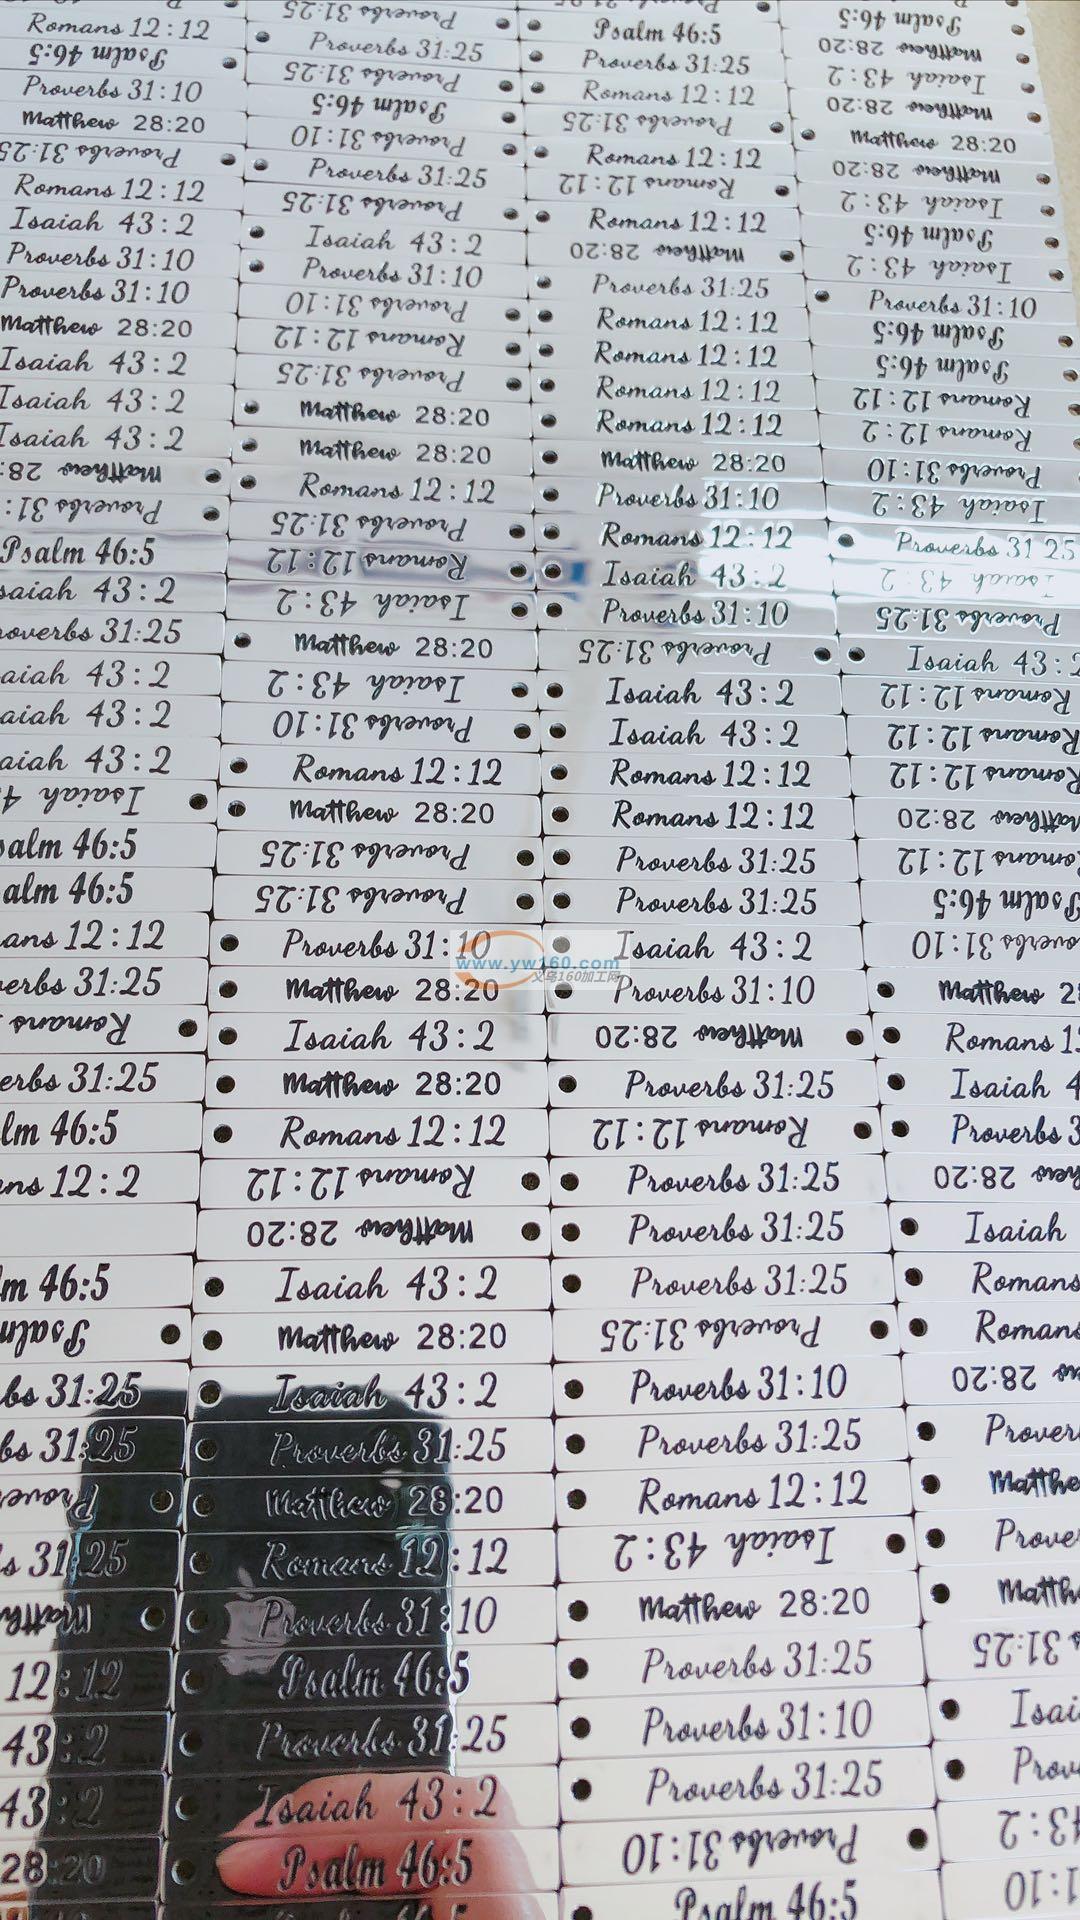 Romans 12:12
Psalm 46:5
Proverbs 31:10
Matthew 28:20
Proverbs 31:25
Romans 12:12
Isaiah 43:2
Proverbs 31:10
Proverbs 31:10
Matthew 28:20
Isaiah 43:2
Isaiah 43:2
Isaiah 43:2
Matthew 28:
Proverbs 31:
Psalm 46:5
saiah 43:2
roverbs 31:25
aiah 43:2
aiah 43:2
aiah 43:2
Isaiah 4
salm 46:5
alm 46:5
ans 12:12
erbs 31:25
Romans
erbs 31:25
lm 46:5
ns 12:2
m 46:5
Psalm
bs 31:25
bs 31:25
Prover
s 31:25
Matth
12:12
43:2
43:2
28:20
Proverbs 31:25
Proverbs 31:25
Proverbs 31:25
Psalm 46:5
Proverbs 31:10
Proverbs 31:25
Proverbs 31:25
Isaiah 43:2
Proverbs 31:10
Proverbs 31:10
Romans 12:12
Proverbs 31:25
Matthew 28:20
Matthew 28:20
Romans 12:12
Proverbs 31:25
Romans 12:12
Isaiah 43:2
Matthew 28:20
Isaiah 43:2
Proverbs 31:10
Romans 12:12
Matthew 28:20
Proverbs 31:25
Proverbs 31:25
Proverbs 31:10
Matthew 28:20
Isaiah 43:2
Matthew 28:20
Romans 12:12
Romans 12:12
Matthew 28:20
Isaiah 43:2
Matthew 28:20
Isaiah 43:2
Proverbs 31:25
Matthew 28:20
Romans 12:12
Proverbs 31:10
Psalm 46:5
Proverbs 31:25
Isaiah 43:2
Psalm 46:5
www.yw160.com
义乌160加工网
Psalm 46:5
Proverbs 31:25
Romans 12:12
Proverbs 31:25
Romans 12:12
Romans 12:12
Romans 12:12
Matthew 28:20
Proverbs 31:25
Romans 12:12
Romans 12:12
Romans 12:12
Romans 12:12
Matthew 28:20
Proverbs 31:10
Romans 12:12
Isaiah 43:2
Proverbs 31:10
Proverbs 31:25
Isaiah 43:2
Isaiah 43:2
Romans 12:12
Romans 12:12
Proverbs 31:25
Proverbs 31:25
Isaiah 43:2
Proverbs 31:10
Matthew 28:20
Proverbs 31:25
Romans 12:12
Proverbs 31:25
Proverbs 31:25
Proverbs 31:25
Proverbs 31:25
Proverbs 31:10
Proverbs 31:25
Romans 12:12
Isaiah 43:2
Matthew 28:20
Proverbs 31:25
Proverbs 31:10
Proverbs 31:25
Proverbs 31:10
Psalm 46:5
Psalm 46:5
Matthew 28:20
Isaiah 43:2
Matthew 28:20
Matthew 28:20
Matthew 28:20
Isaiah 43:2
Psalm 46:5
Isaiah 43:2
Proverbs 31:10
Psalm 46:5
Psalm 46:5
Romans 12:12
Romans 12:2
Proverbs 31:10
Isaiah 43:2
Proverbs 31 25
Isaiah 43:2
Proverbs 31:25
Isaiah 43:
Romans 12:12
Romans 12:12
Romans 12:12
Matthew 28:20
Romans 12:12
Psalm 46:5
overbs 31:10
Matthew 2
Romans 1
Isaiah 4
Proverbs 3
28:20
Isaiah
Romans
Romans
28:20
Prover
Matthe
Prove
Matth
s 31:25
Isai
Prov
43:2
1:10